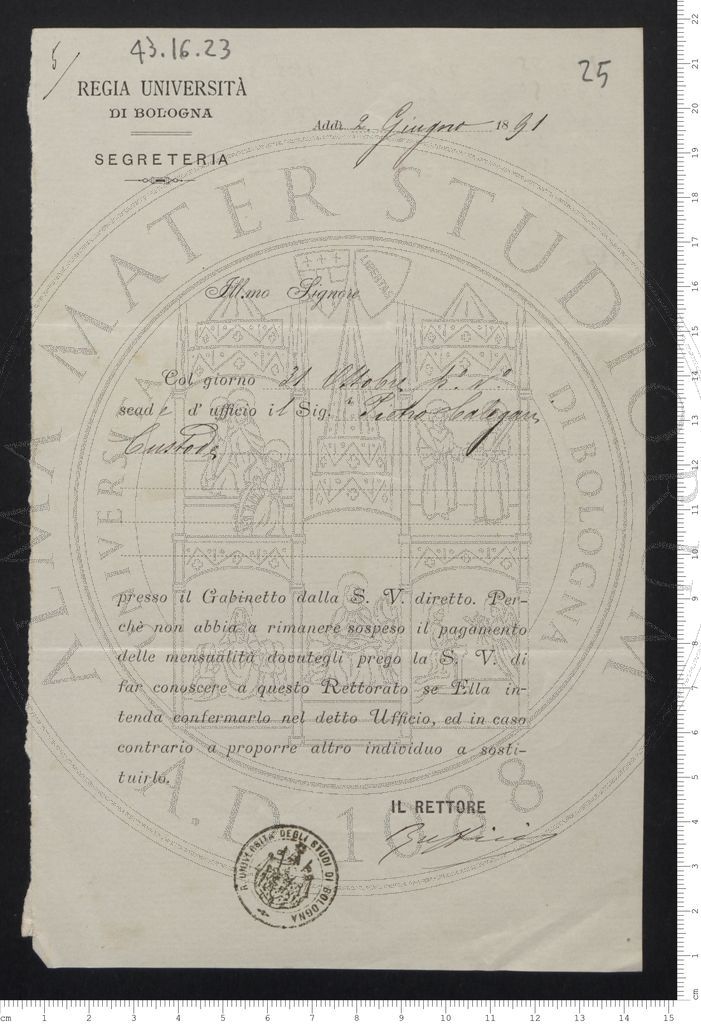 5/
43.16.23
25
REGIA UNIVERSITÀ
DI BOLOGNA
SEGRETERIA
Addì 2 Giugno 1891
Ill.mo Signore
Col giorno 21 Ottobre p.º v.º
scade d'ufficio il Sig. Pietro Calegari
Custode
presso il Gabinetto dalla S. V. diretto. Per-
chè non abbia a rimanere sospeso il pagamento
delle mensualità dovutegli prego la S. V. di
far conoscere a questo Rettorato se Ella in-
tenda confermarlo nel detto Ufficio, ed in caso
contrario a proporre altro individuo a sosti-
tuirlo.
IL RETTORE
R. UNIVERSITÀ DEGLI STUDI DI BOLOGNA
ALMA MATER STUDIORUM
UNIVERSITÀ DI BOLOGNA
LIBERTAS
A.D. 1088